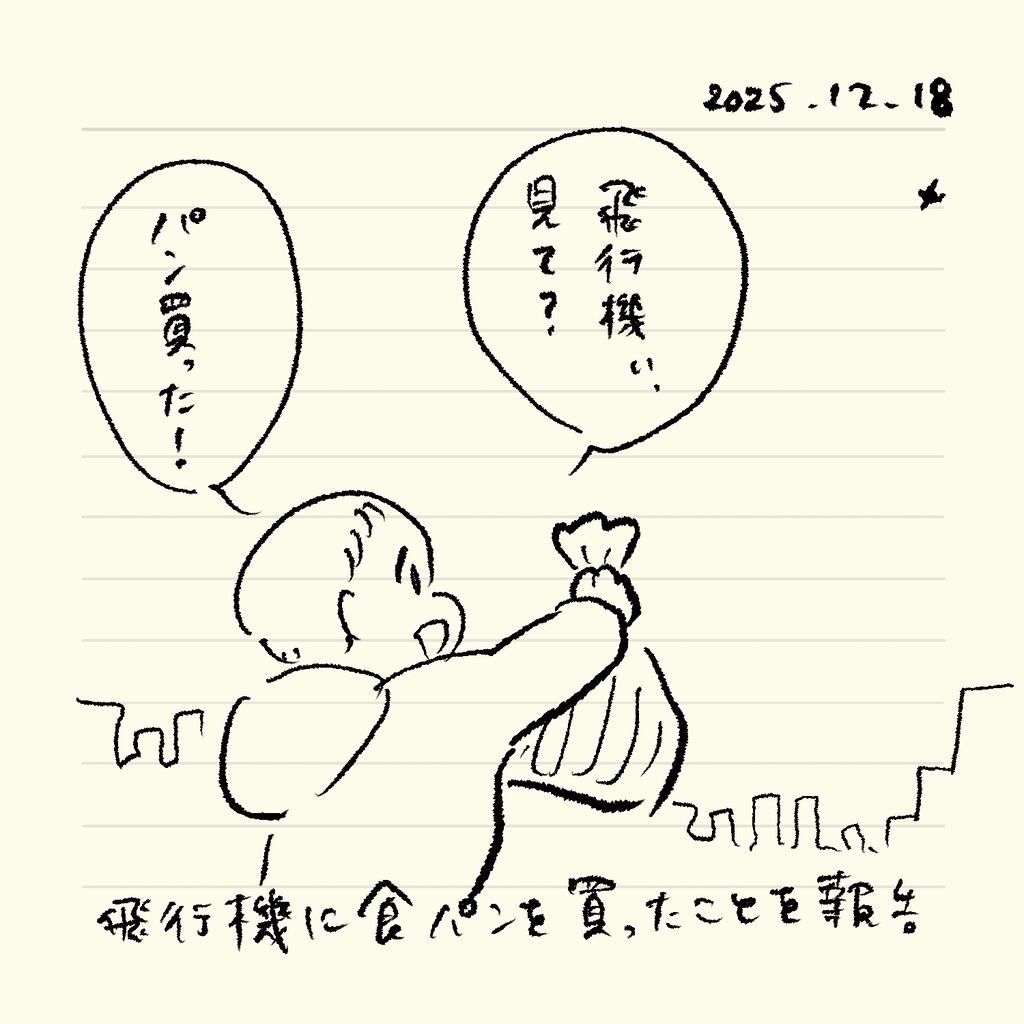 2025.12.18
飛行機ぃ、
見て?
パン買った!
飛行機に食パンを買ったことを報告